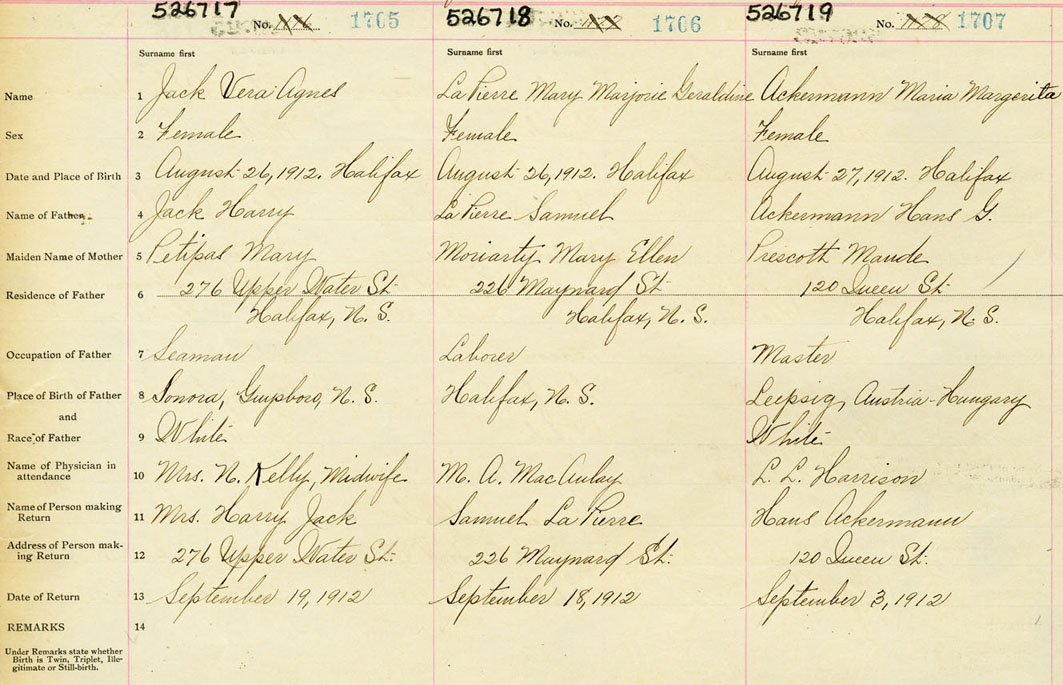 526717 No. 1705 526718 No. 1706 526719 No. 1707
Surname first Surname first Surname first
Name 1 Jack Vera Agnes La Pierre Mary Marjorie Geraldine Ackermann Maria Margerita
Sex 2 Female Female Female
Date and Place of Birth 3 August 26, 1912. Halifax August 26, 1912. Halifax August 27, 1912. Halifax
Name of Father 4 Jack Harry La Pierre Samuel Ackermann Hans G.
Maiden Name of Mother 5 Petipas Mary Moriarty Mary Ellen Prescott Maude
Residence of Father 6 276 Upper Water St. 226 Maynard St. 120 Queen St.
Halifax, N. S. Halifax, N. S. Halifax, N. S.
Occupation of Father 7 Seaman Laborer Master
Place of Birth of Father 8 Sonora, Guysboro, N. S. Halifax, N. S. Leipsig, Austria-Hungary
and
Race of Father 9 White White
Name of Physician in
attendance 10 Mrs. N. Kelly, Midwife M. A. MacAulay L. L. Harrison
Name of Person making
Return 11 Mrs. Harry Jack Samuel La Pierre Hans Ackermann
Address of Person mak-
ing Return 12 276 Upper Water St. 226 Maynard St. 120 Queen St.
Date of Return 13 September 19, 1912 September 18, 1912 September 3, 1912
REMARKS 14
Under Remarks state whether
Birth is Twin, Triplet, Ille-
gitimate or Still-birth.